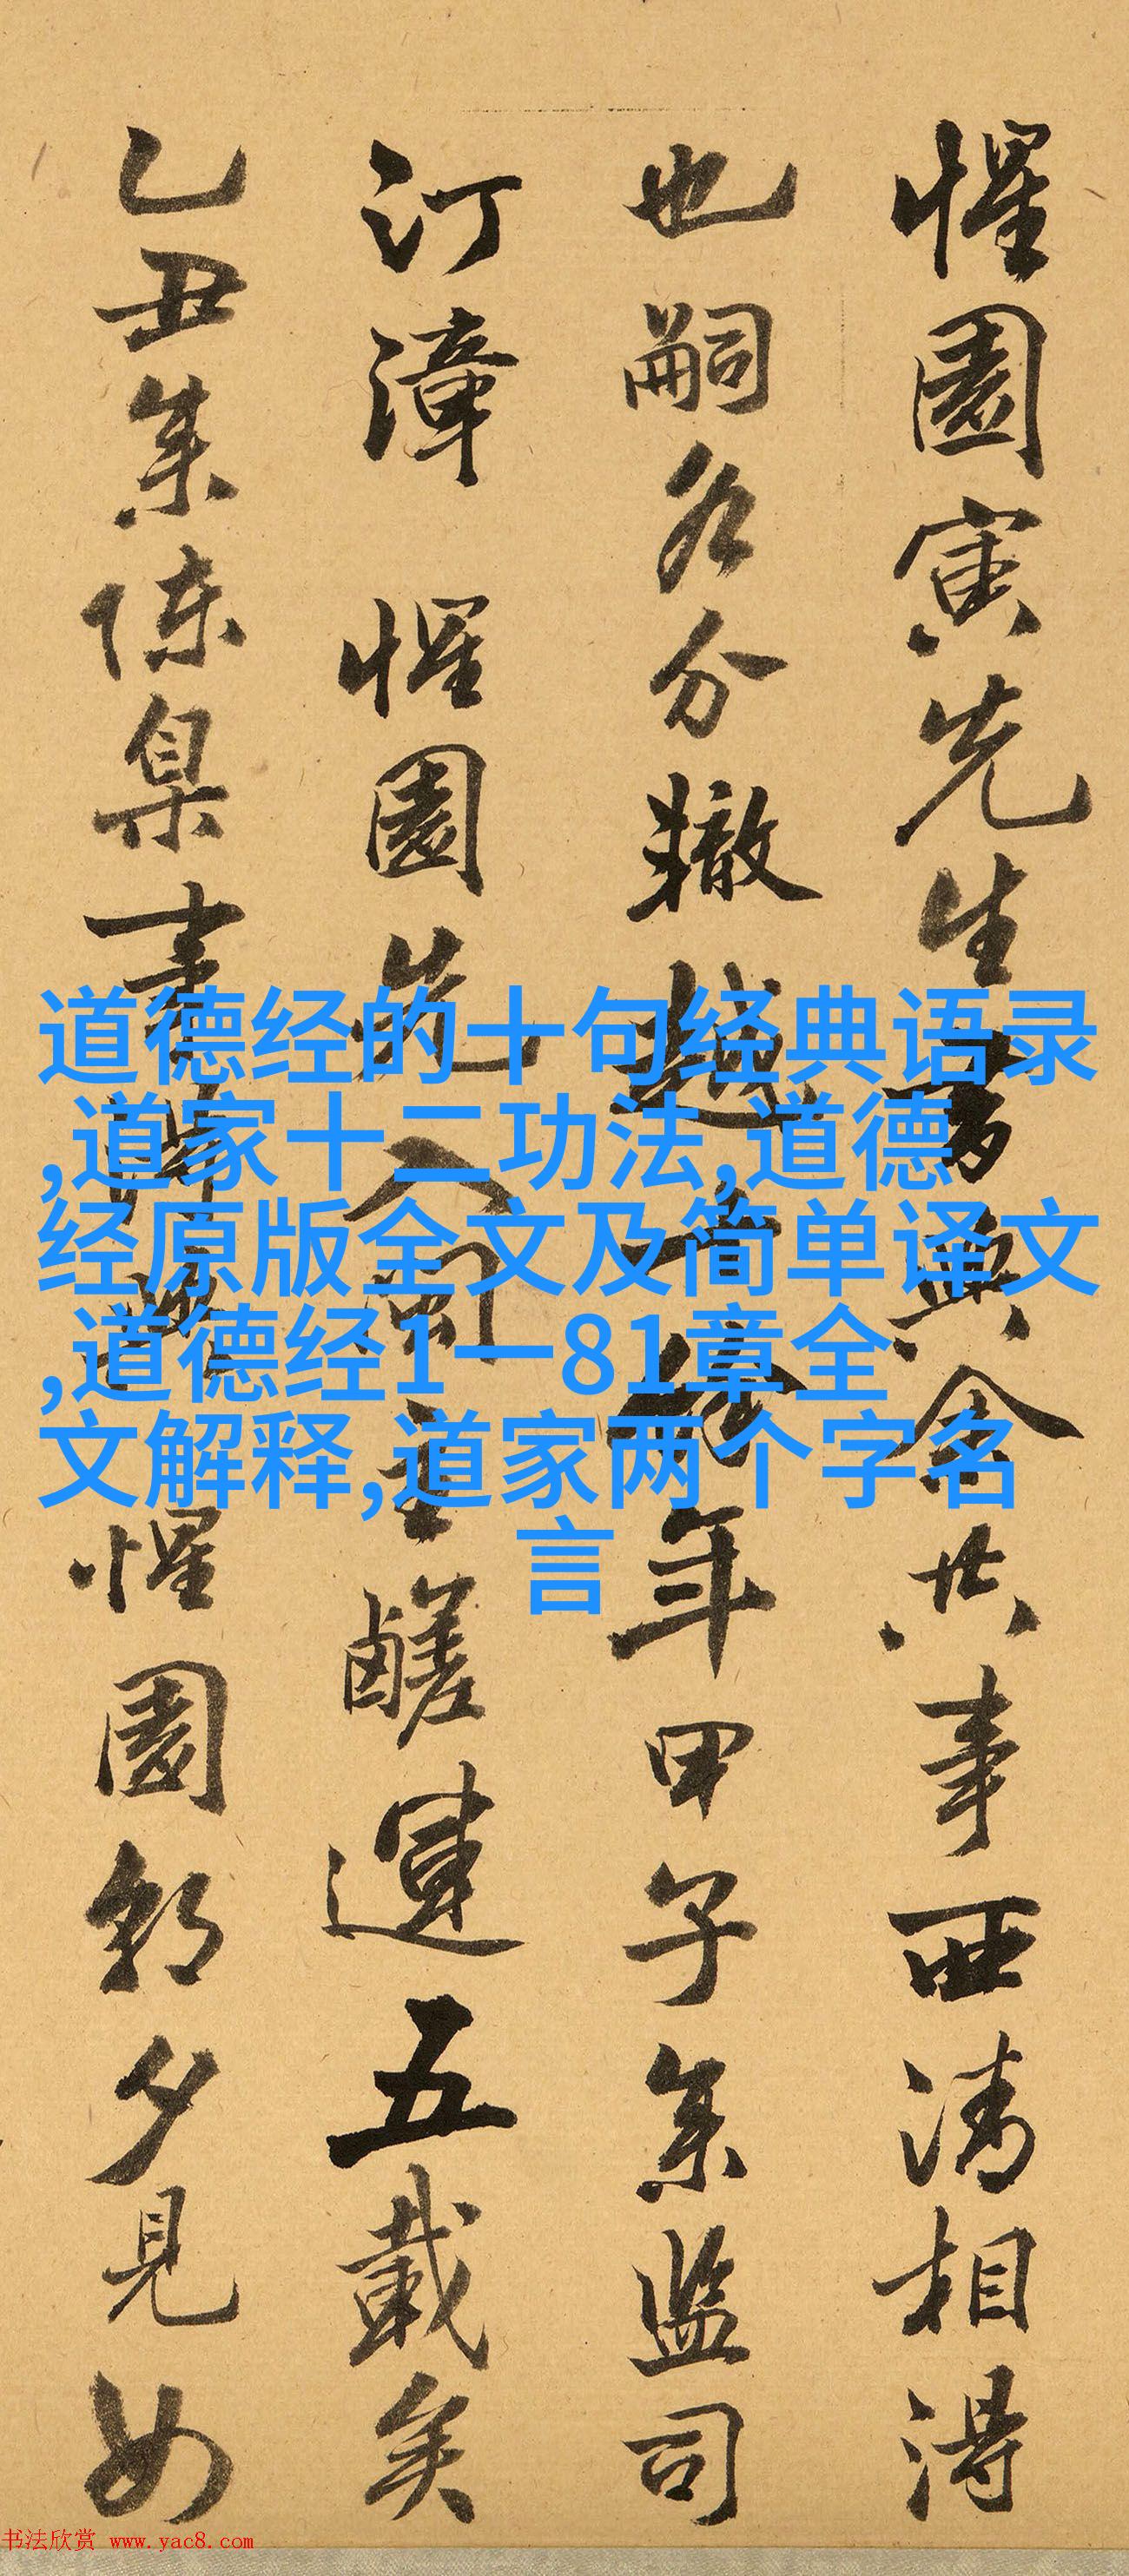 惺園寅先生與余共事西清相得
也嗣各分轍越十餘年甲子余監司
汀漳 惺園先入閩主鹺運五載矣
乙丑余陳臬惺園朝夕見如
道德经的十句经典语录
,道家十二功法,道德
经原版全文及简单译文
,道德经1一81章全
文解释,道家两个字名
言
书法欣赏 www.yac8.com